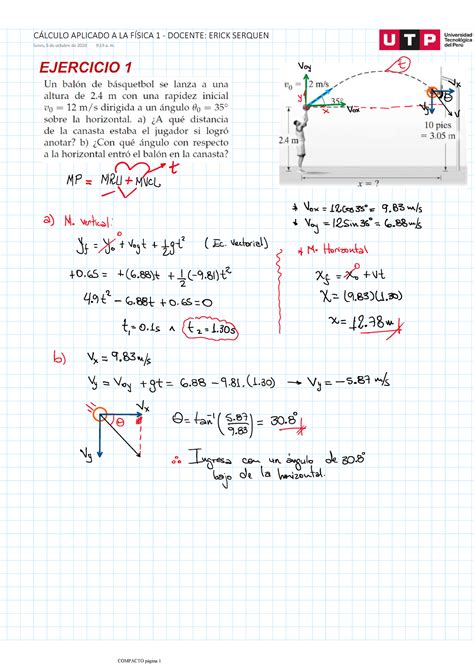 CÁLCULO APLICADO A LA FÍSICA 1 - DOCENTE: ERICK SERQUEN
lunes, 5 de octubre de 2020
UTP Universidad Tecnológica del Perú
EJERCICIO 1
Un balón de básquetbol se lanza a una
altura de 2.4 m con una rapidez inicial
v₀ = 12 m/s dirigida a un ángulo θ₀ = 35°
sobre la horizontal. a) ¿A qué distancia
de la canasta estaba el jugador si logró
anotar? b) ¿Con qué ángulo con respecto
a la horizontal entró el balón en la canasta?
Voy
t
v₀ = 12 m/s
y
35°
x
Vox
Vx
Vy
2.4 m
10 pies
= 3.05 m
x = ?
t
MP = MRU + MVCL
Vox = 12Cos35° = 9.83 m/s
Voy = 12Sin35° = 6.88 m/s
a) M. vertical:
yf = y₀ + Voyt + ½gt² (Ec. vectorial)
+0.65 = +(6.88)t + ½(-9.81)t²
4.9t² - 6.88t + 0.65 = 0
t₁ = 0.1s ∧ t₂ = 1.30s
M. Horizontal
Xf = X₀ + Vt
X = (9.83)(1.30)
X = 12.78m
b) Vx = 9.83 m/s
Vy = Voy + gt = 6.88 - 9.81.(1.30) → Vy = -5.87 m/s
Vx
θ
Vy
θ = tan⁻¹(5.87/9.83) = 30.8°
∴ Ingresa con un ángulo de 30.8°
bajo de la horizontal.
COMPACTO página 1